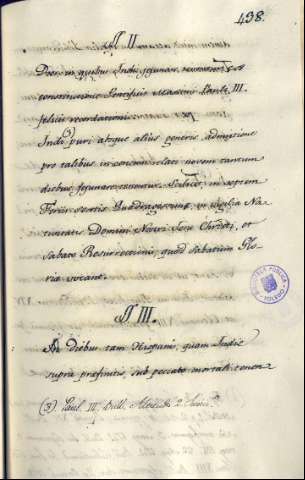 438.
§ II
Dies in quibus Indi jejunare tenentur ex
constitutione Pontificis Maximi Pauli III.
felicis recordationis
Indi puri atque alius generis admixtione
pro talibus in novem tantum
diebus jejunare tenentur. Scilicet, in septem
Feriis sextis Quadragesimæ, in vigilia Na-
tivitatis Domini Nostri Jesu Christi, et
Sabato Resurrectionis, quod sabatum Glo-
riæ vocant.
§ III.
In diebus tam Hispanis, quam Indis
supra præfinitis, sub peccato mortali tenen
(3) Paul. III. Bull.
BIBLIOTECA PUBLICA
TOLEDO